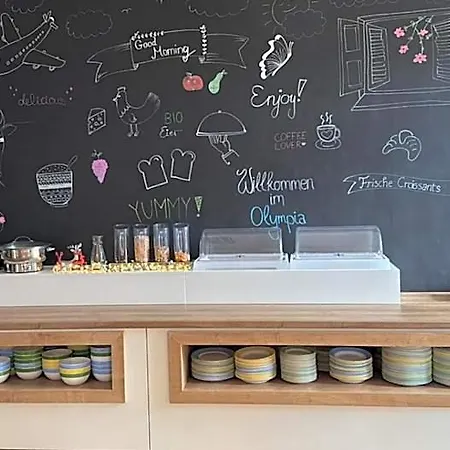 Good
Morning
delicious
Enjoy!
BIO
Eier
COFFEE
LOVER
Willkommen
im
Olympia
Frische Croissants
YUMMY!